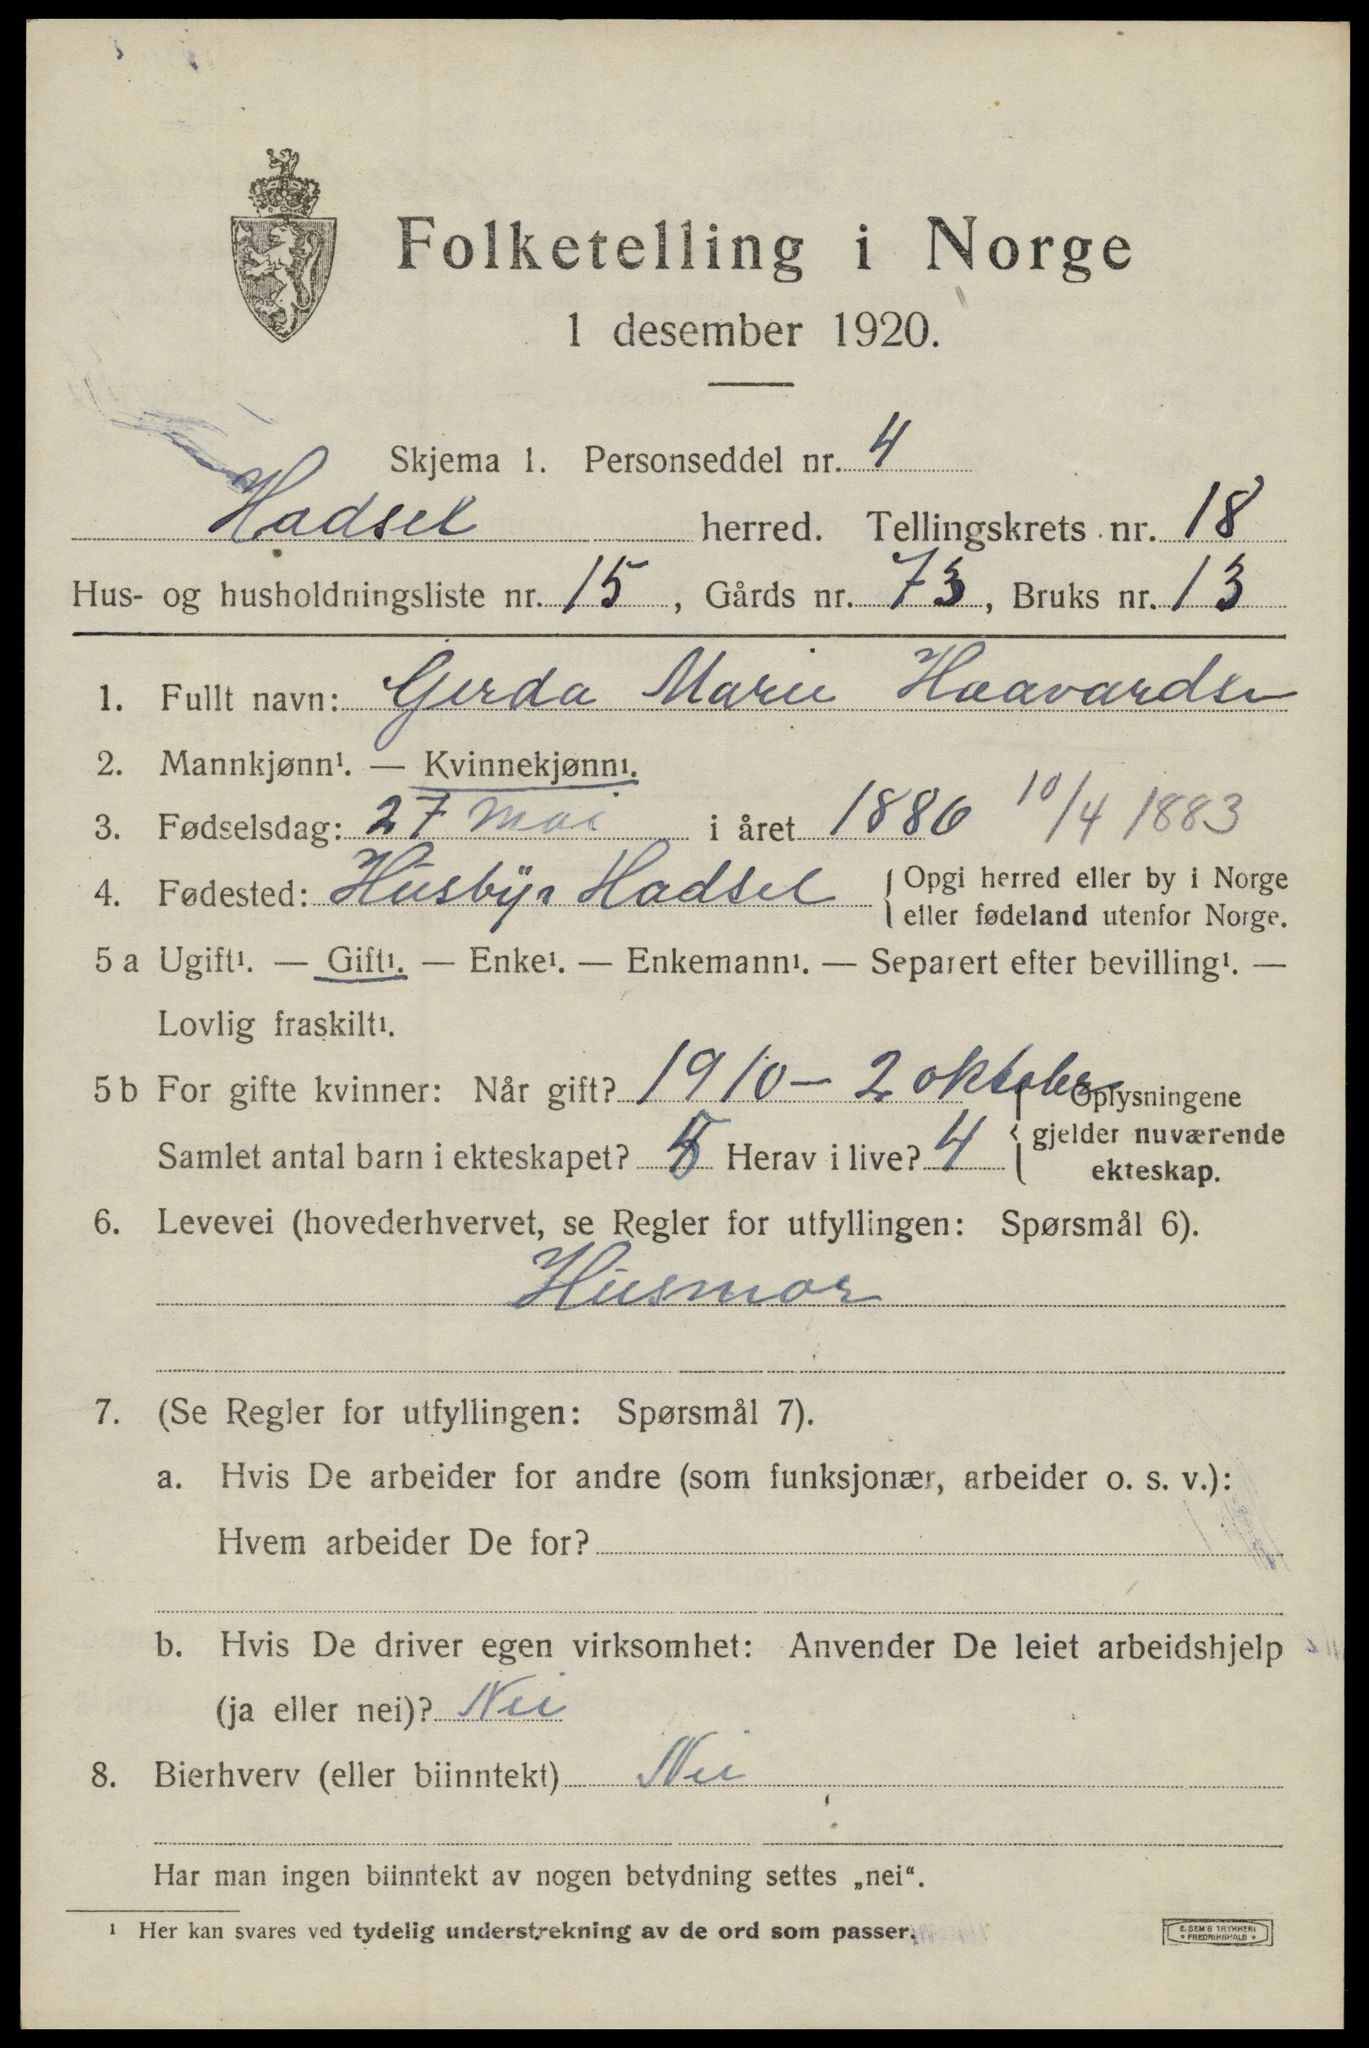 Folketelling i Norge
1 desember 1920.
Skjema 1. Personseddel nr. 4
Hadsel herred. Tellingskrets nr. 18
Hus- og husholdningsliste nr. 15, Gårds nr. 73, Bruks nr. 13
1. Fullt navn: Gerda Marie Haavardsen
2. Mannkjønn¹. — Kvinnekjønn¹.
3. Fødselsdag: 27 mai i året 1886 10/4 1883
4. Fødested: Husbyn Hadsel { Opgi herred eller by i Norge
eller fødeland utenfor Norge.
5 a Ugift¹. — Gift¹. — Enke¹. — Enkemann¹. — Separert efter bevilling¹. —
Lovlig fraskilt¹.
5 b For gifte kvinner: Når gift? 1910 – 2 oktober { Oplysningene
gjelder nuværende
ekteskap.
Samlet antal barn i ekteskapet? Herav i live? 4
6. Levevei (hovederhvervet, se Regler for utfyllingen: Spørsmål 6).
Husmor
7. (Se Regler for utfyllingen: Spørsmål 7).
a. Hvis De arbeider for andre (som funksjonær, arbeider o. s. v.):
Hvem arbeider De for?
b. Hvis De driver egen virksomhet: Anvender De leiet arbeidshjelp
(ja eller nei)? Nei
8. Bierhverv (eller biinntekt) Nei
Har man ingen biinntekt av nogen betydning settes „nei“.
¹ Her kan svares ved tydelig understrekning av de ord som passer.
E. SEM'S TRYKKERI
* FREDRIKSHALD *